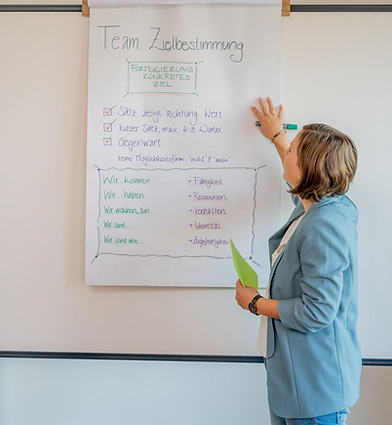 Team Zielbestimmung
FORMULIERUNG
KONKRETES
ZIEL
Satz zeigt Richtung Wert
kurzer Satz, max. 6-8 Wörter
Gegenwart
keine Möglichkeitsform "nicht" & "mehr"
Wir können... → Fähigkeit
Wir haben... → Ressourcen
Wir machen, tun → Verhalten
Wir sind... → Identität
Wir sind wie... → Zugehörigkeit